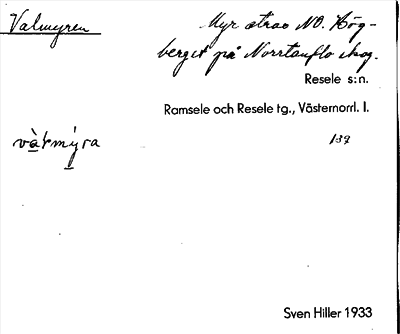 Valmyren
Myr strax NO. Hög-
berget på Norrtanflo skog.
Resele s:n.
Ramsele och Resele tg., Västernorrl. l.
139
vàlmýra
Sven Hiller 1933